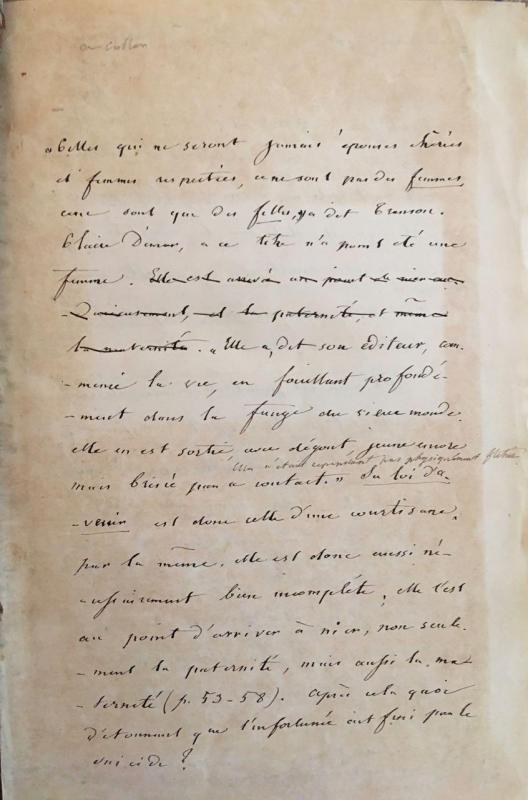 « Celles qui ne seront jamais épouses chéries
et femmes respectées, ce ne sont pas des femmes,
ce ne sont que des filles, » a dit Transon.
Claire Démar, à ce titre n'a point été une
femme. Elle est arrivée au point de nier
-Quieusement, et la paternité, et même
la maternité. « Elle a, dit son éditeur, com-
-mencé la vie, en fouillant profondé-
-ment dans la fange du vieux monde.
elle en est sortie avec dégout, jeune encore
Elle n'était cependant pas physiquement flétrie
mais brisée par ce contact. » Sa loi d'a-
-venir est donc celle d'une courtisane,
par là même, elle est donc aussi né-
-cessairement bien incomplète, elle l'est
au point d'arriver à nier, non seule-
-ment la paternité, mais aussi la ma-
-ternité (p. 53-58). Après cela quoi
d'étonnant que l'infortunée ait fini par le
suicide ?